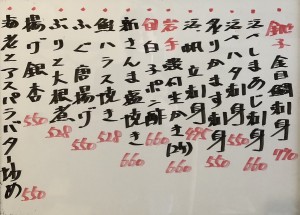 銚子 金目鯛刺身 770
活〆しまあじ刺身 550
活〆ハタ刺身 550
炙りかます刺身 550
活帆立刺身 495
岩手 殻付生かき(2ヶ) 660
白子ポン酢 660
新さんま塩焼き 660
鮭ハラス焼き 550
ふぐ唐揚げ 660
ぶりと大根煮 528
揚げ銀杏 550
海老とアスパラバター炒め 550